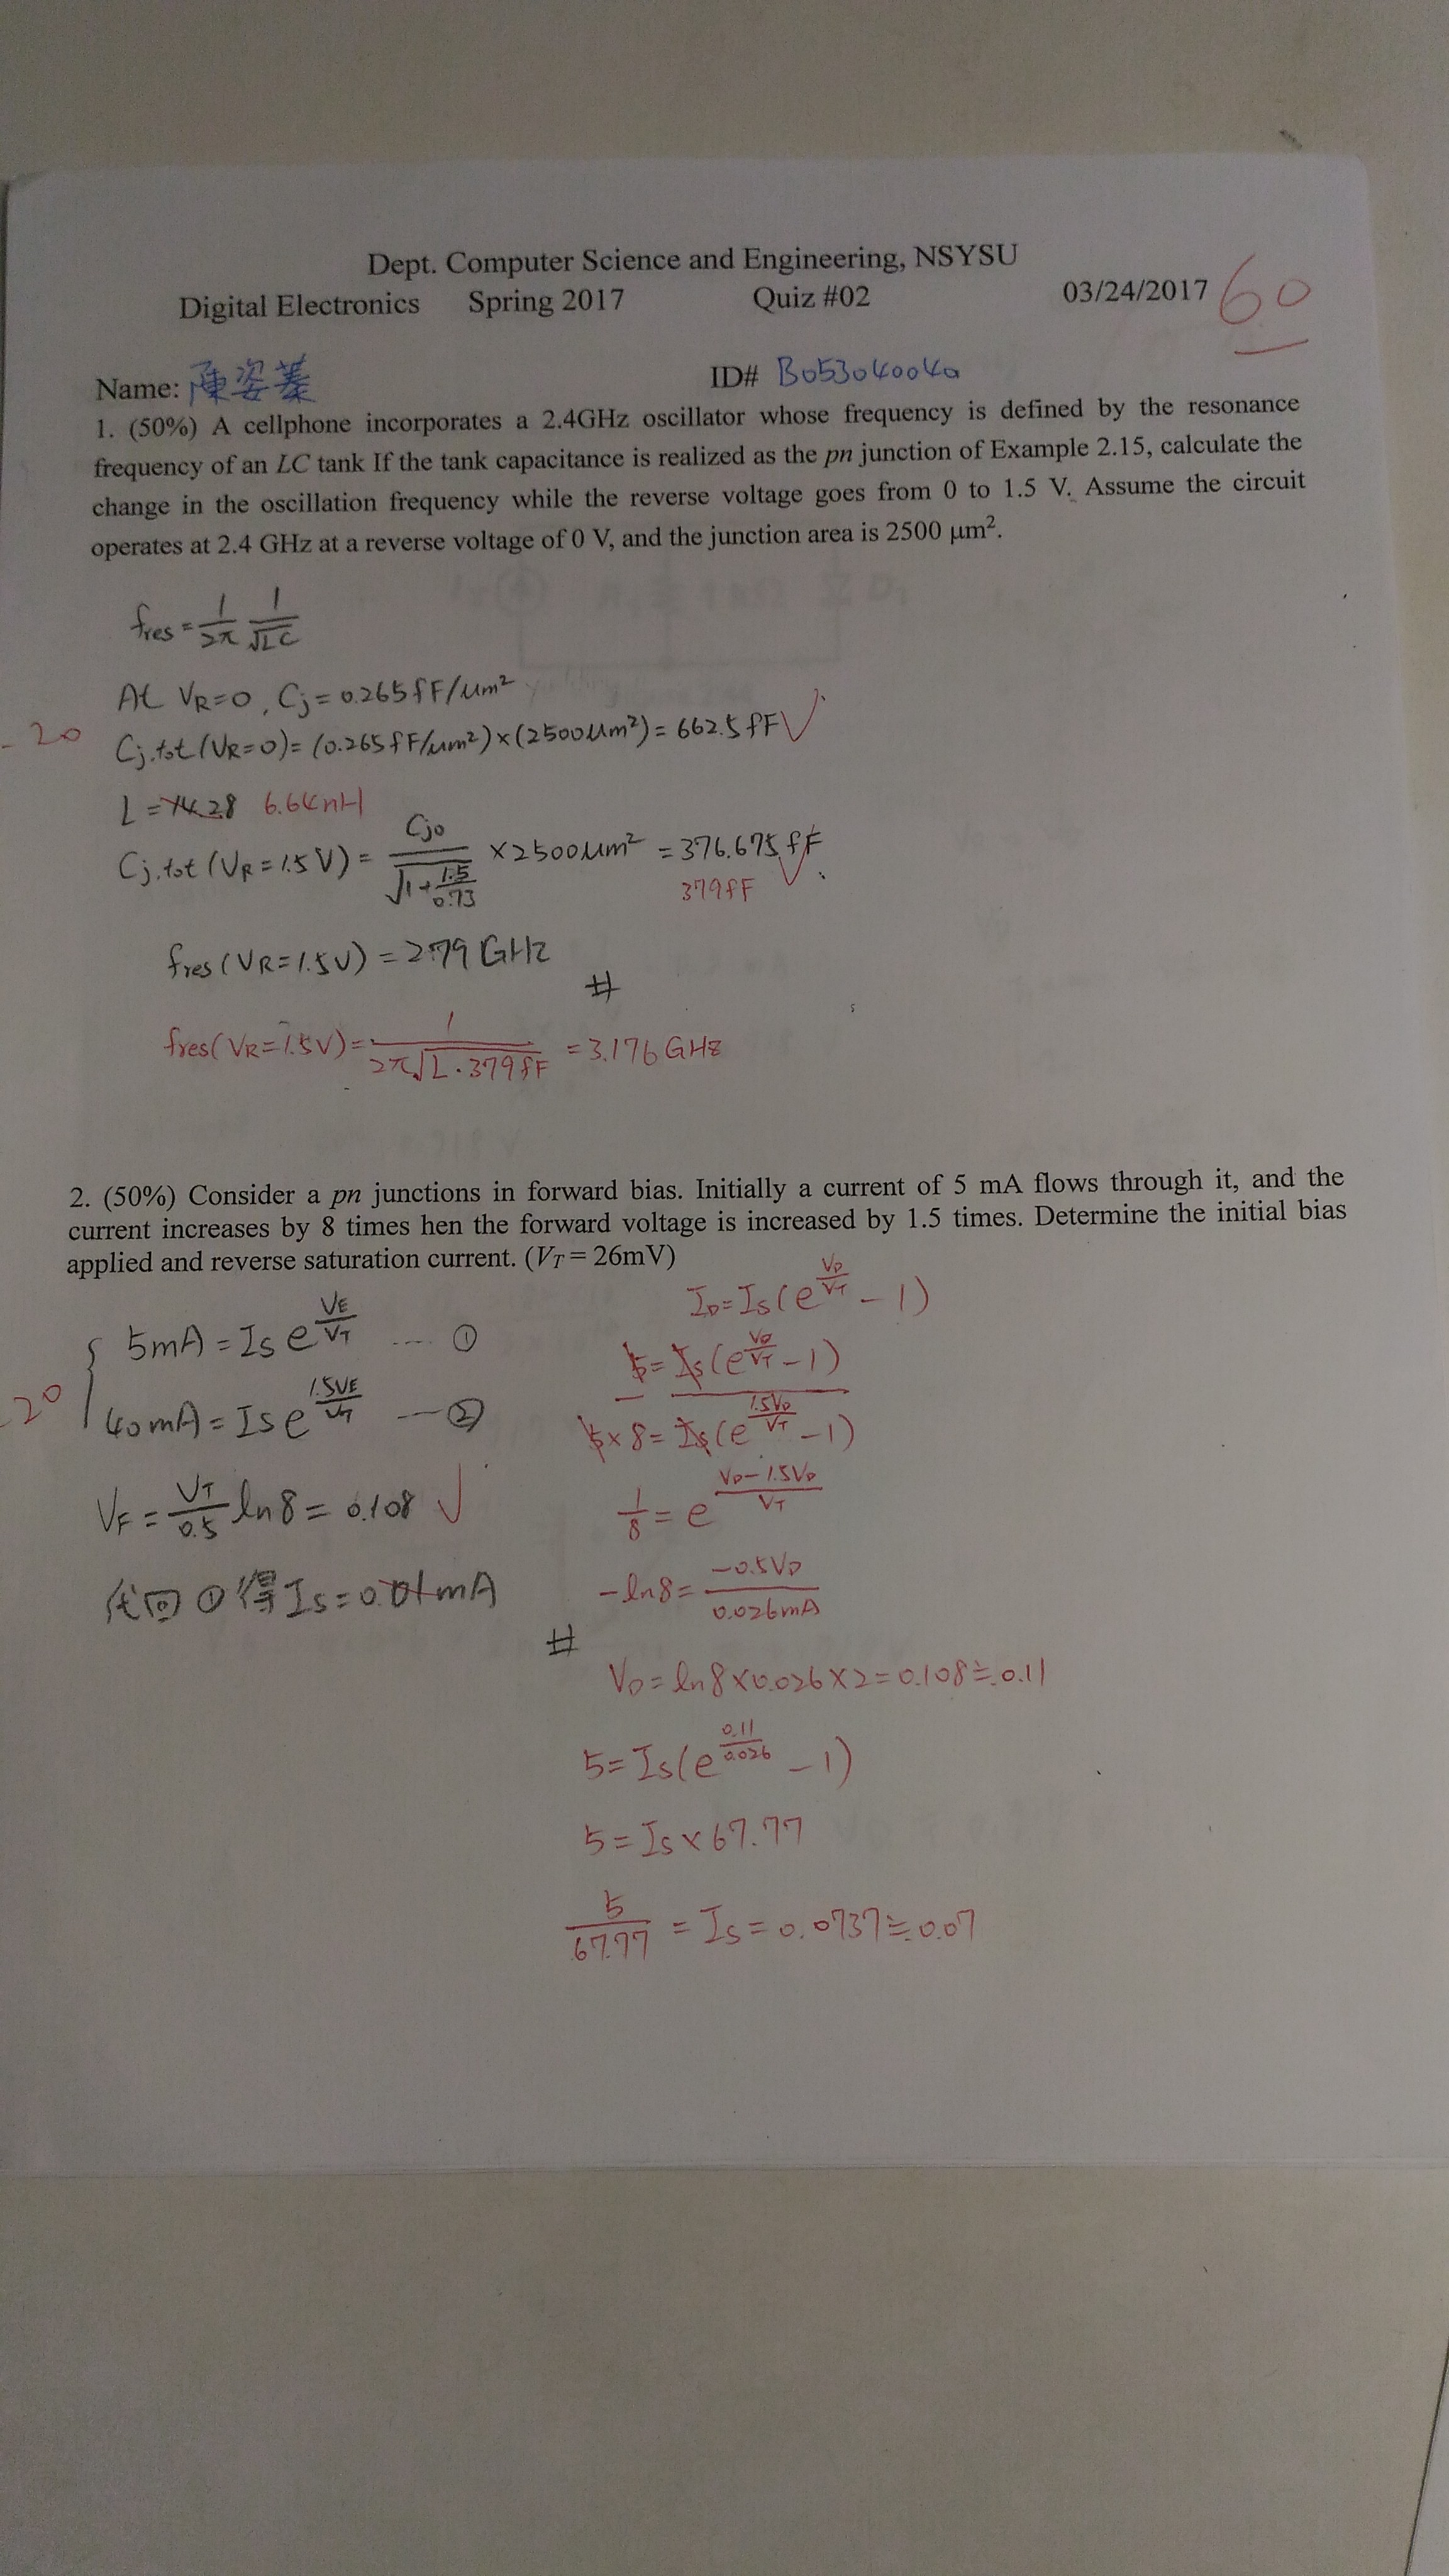 Dept. Computer Science and Engineering, NSYSU
Digital Electronics Spring 2017 Quiz #02 03/24/2017 60
Name: 陳姿蓁 ID# B053040040
1. (50%) A cellphone incorporates a 2.4GHz oscillator whose frequency is defined by the resonance
frequency of an LC tank If the tank capacitance is realized as the pn junction of Example 2.15, calculate the
change in the oscillation frequency while the reverse voltage goes from 0 to 1.5 V. Assume the circuit
operates at 2.4 GHz at a reverse voltage of 0 V, and the junction area is 2500 μm².
fres = 1/2π 1/√LC
At VR=0, Cj=0.265fF/μm²
-20
Cj,tot(VR=0)=(0.265fF/μm²)×(2500μm²)=662.5fF ✓
L=74.28 6.64nH
Cj,tot(VR=1.5V)= Cj0/√(1+1.5/0.73) ×2500μm² =376.675fF ✓
379fF
fres(VR=1.5V)=2.79GHz
#
fres(VR=1.5V)= 1/(2π√(L·379fF)) =3.176GHz
2. (50%) Consider a pn junctions in forward bias. Initially a current of 5 mA flows through it, and the
current increases by 8 times hen the forward voltage is increased by 1.5 times. Determine the initial bias
applied and reverse saturation current. (VT = 26mV)
5mA=Is e^(VE/VT) ---- ①
-20
40mA=Is e^(1.5VE/VT) --- ②
VF= VT/0.5 ln8=0.108 ✓
代回①得Is=0.01mA
#
ID=Is(e^(VD/VT)-1)
5=Is(e^(VD/VT)-1)
5×8=Is(e^(1.5VD/VT)-1)
1/8=e^((VD-1.5VD)/VT)
-ln8= -0.5VD/0.026mA
VD=ln8×0.026×2=0.108≒0.11
5=Is(e^(0.11/0.026)-1)
5=Is×67.77
5/67.77=Is=0.0737≒0.07